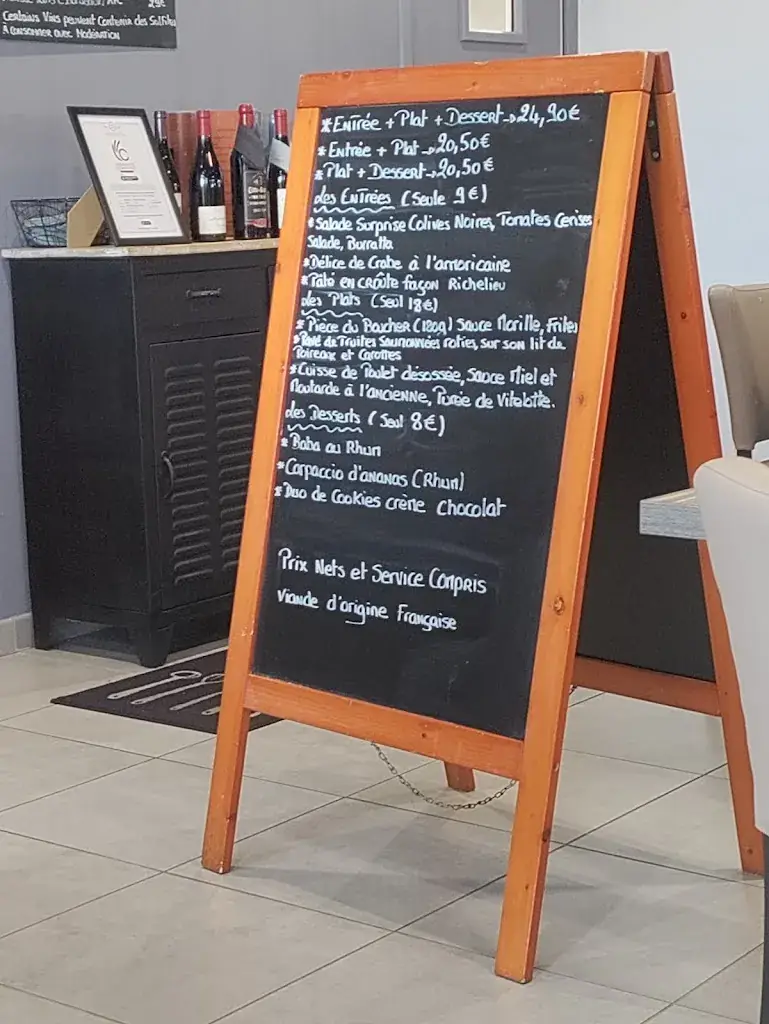 29€
Certains Vins peuvent Contenir des Sulfites
A consommer avec Modération
*Entrée + Plat + Dessert→24,90€
*Entrée + Plat→20,50€
*Plat + Dessert→20,50€
Les Entrées (Seule 9€)
*Salade Surprise (olives Noires, Tomates Cerises
Salade, Burratta
*Délice de Crabe à l'américaine
*Paté en croûte façon Richelieu
Les Plats (Seul 18€)
*Pièce du Boucher (180g) Sauce Morille, Frites
*Pavé de Truites Saumonnées roties, sur son lit de
Poireaux et Carottes
*Cuisse de Poulet désossée, Sauce Miel et
Moutarde à l'ancienne, Purée de Vitelotte.
Les Desserts (Seul 8€)
*Baba au Rhum
*Carpaccio d'ananas (Rhum)
*Duo de Cookies crème chocolat
Prix Nets et Service Compris
Viande d'origine Française